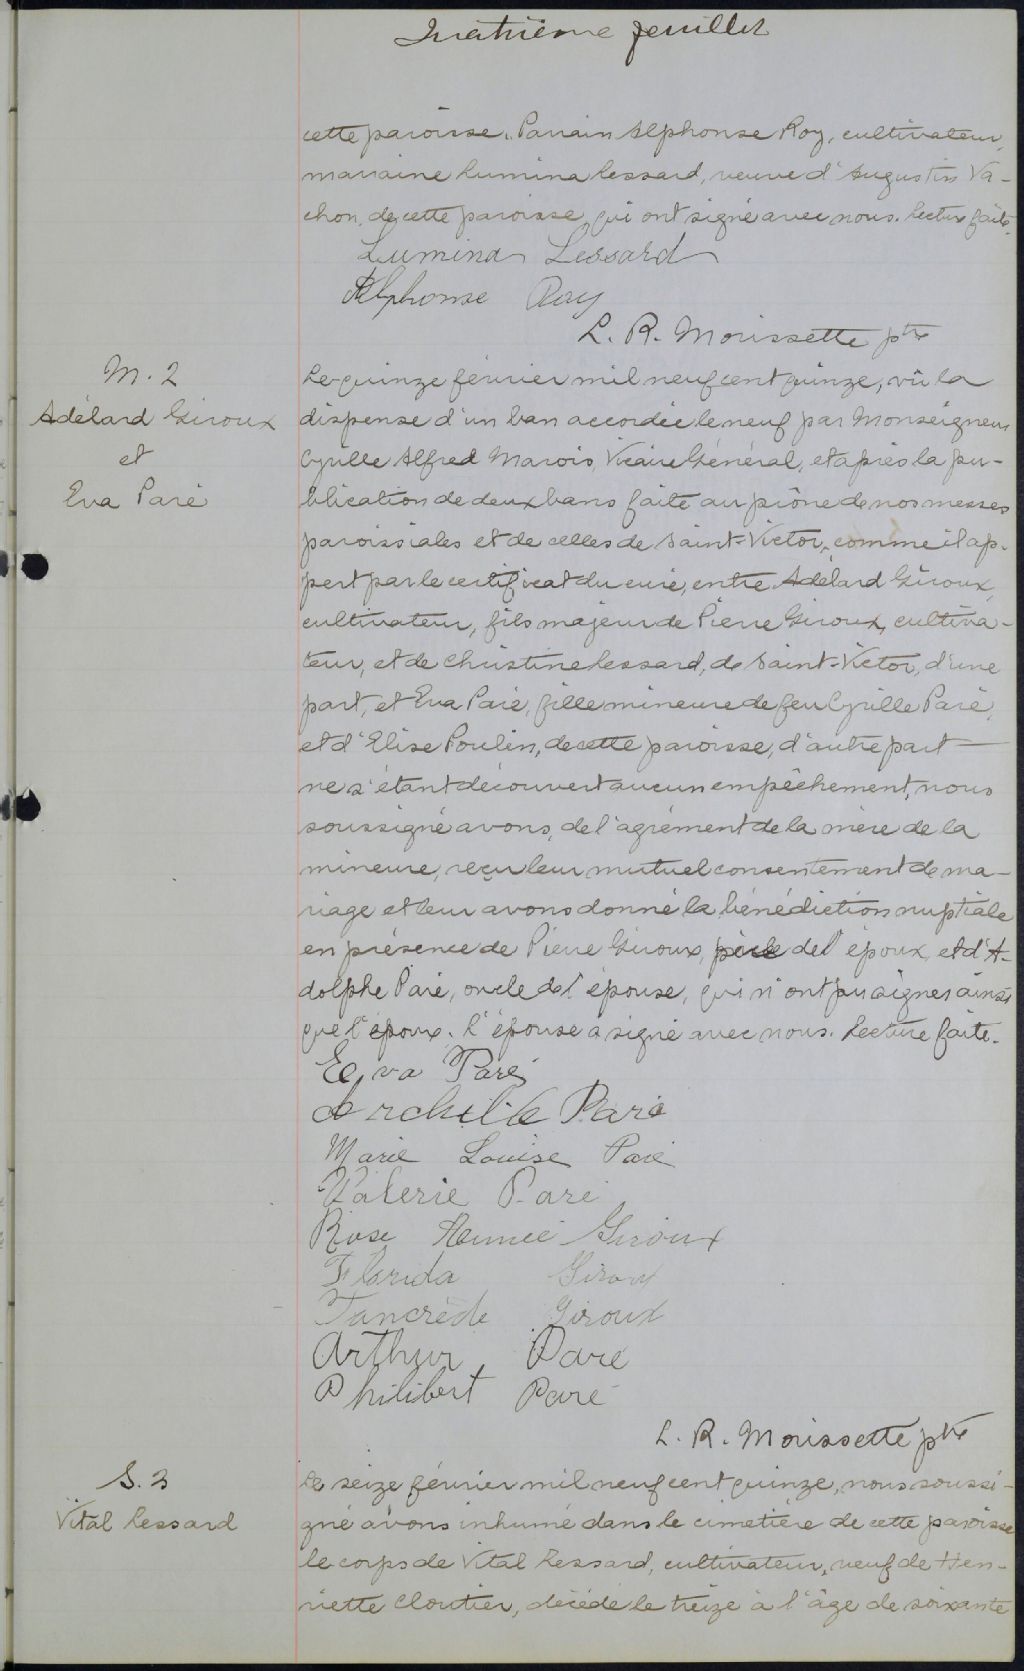 Quatrième feuillet
cette paroisse. Parrain Alphonse Roy, cultivateur,
marraine Lumina Lessard, veuve d'Augustin Va-
chon, de cette paroisse, qui ont signé avec nous. Lecture faite.
Lumina Lessard
Alphonse Roy
L. R. Morissette ptre
M. 2
Adélard Giroux
et
Eva Paré
Le quinze février mil neuf cent quinze, vû la
dispense d'un ban accordée le neuf par Monseigneur
Cyrille Alfred Marois, Vicaire Général, et après la pu-
blication de deux bans faite au prône de nos messes
paroissiales et de celles de Saint-Victor, comme il ap-
pert par le certificat du curé, entre Adélard Giroux,
cultivateur, fils majeur de Pierre Giroux, cultiva-
teur, et de Christine Lessard, de Saint-Victor, d'une
part, et Eva Paré, fille mineure de feu Cyrille Paré,
et d'Elise Poulin, de cette paroisse, d'autre part
ne s'étant découvert aucun empêchement, nous
soussigné avons, de l'agrément de la mère de la
mineure, reçu leur mutuel consentement de ma-
riage et leur avons donné la bénédiction nuptiale
en présence de Pierre Giroux, père de l'époux, et d'A-
dolphe Paré, oncle de l'épouse, qui n'ont pu signer ainsi
que l'époux. L'épouse a signé avec nous. Lecture faite.
Eva Paré
Archilile Paré
Marie Louise Paré
Valerie Paré
Rose Aimée Giroux
Florida Giroux
Tancrède Giroux
Arthur Paré
Philibert Paré
L. R. Morissette ptre
S. 3
Vital Lessard
Le seize février mil neuf cent quinze, nous soussi-
gné avons inhumé dans le cimetière de cette paroisse
le corps de Vital Lessard, cultivateur, veuf de Hen-
riette Cloutier, décédé le treize à l'âge de soixante